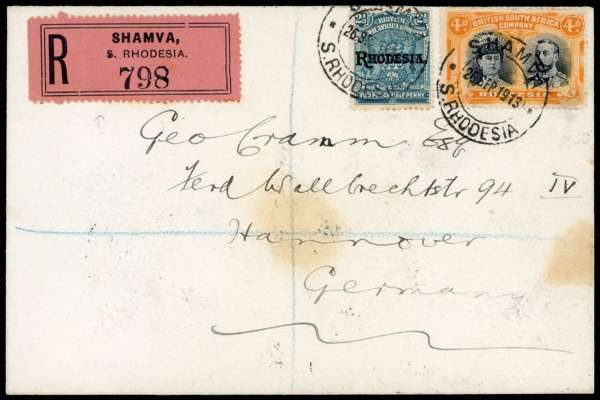 R
SHAMVA,
S. RHODESIA.
798
2½
RHODESIA.
HALF PENNY
4D BRITISH SOUTH AFRICA 4D
COMPANY
RHODESIA
SHAMVA
1913
S. RHODESIA
Geo Cramm Esq
Ferd Wallbrechtstr 94 IV
Hannover
Germany